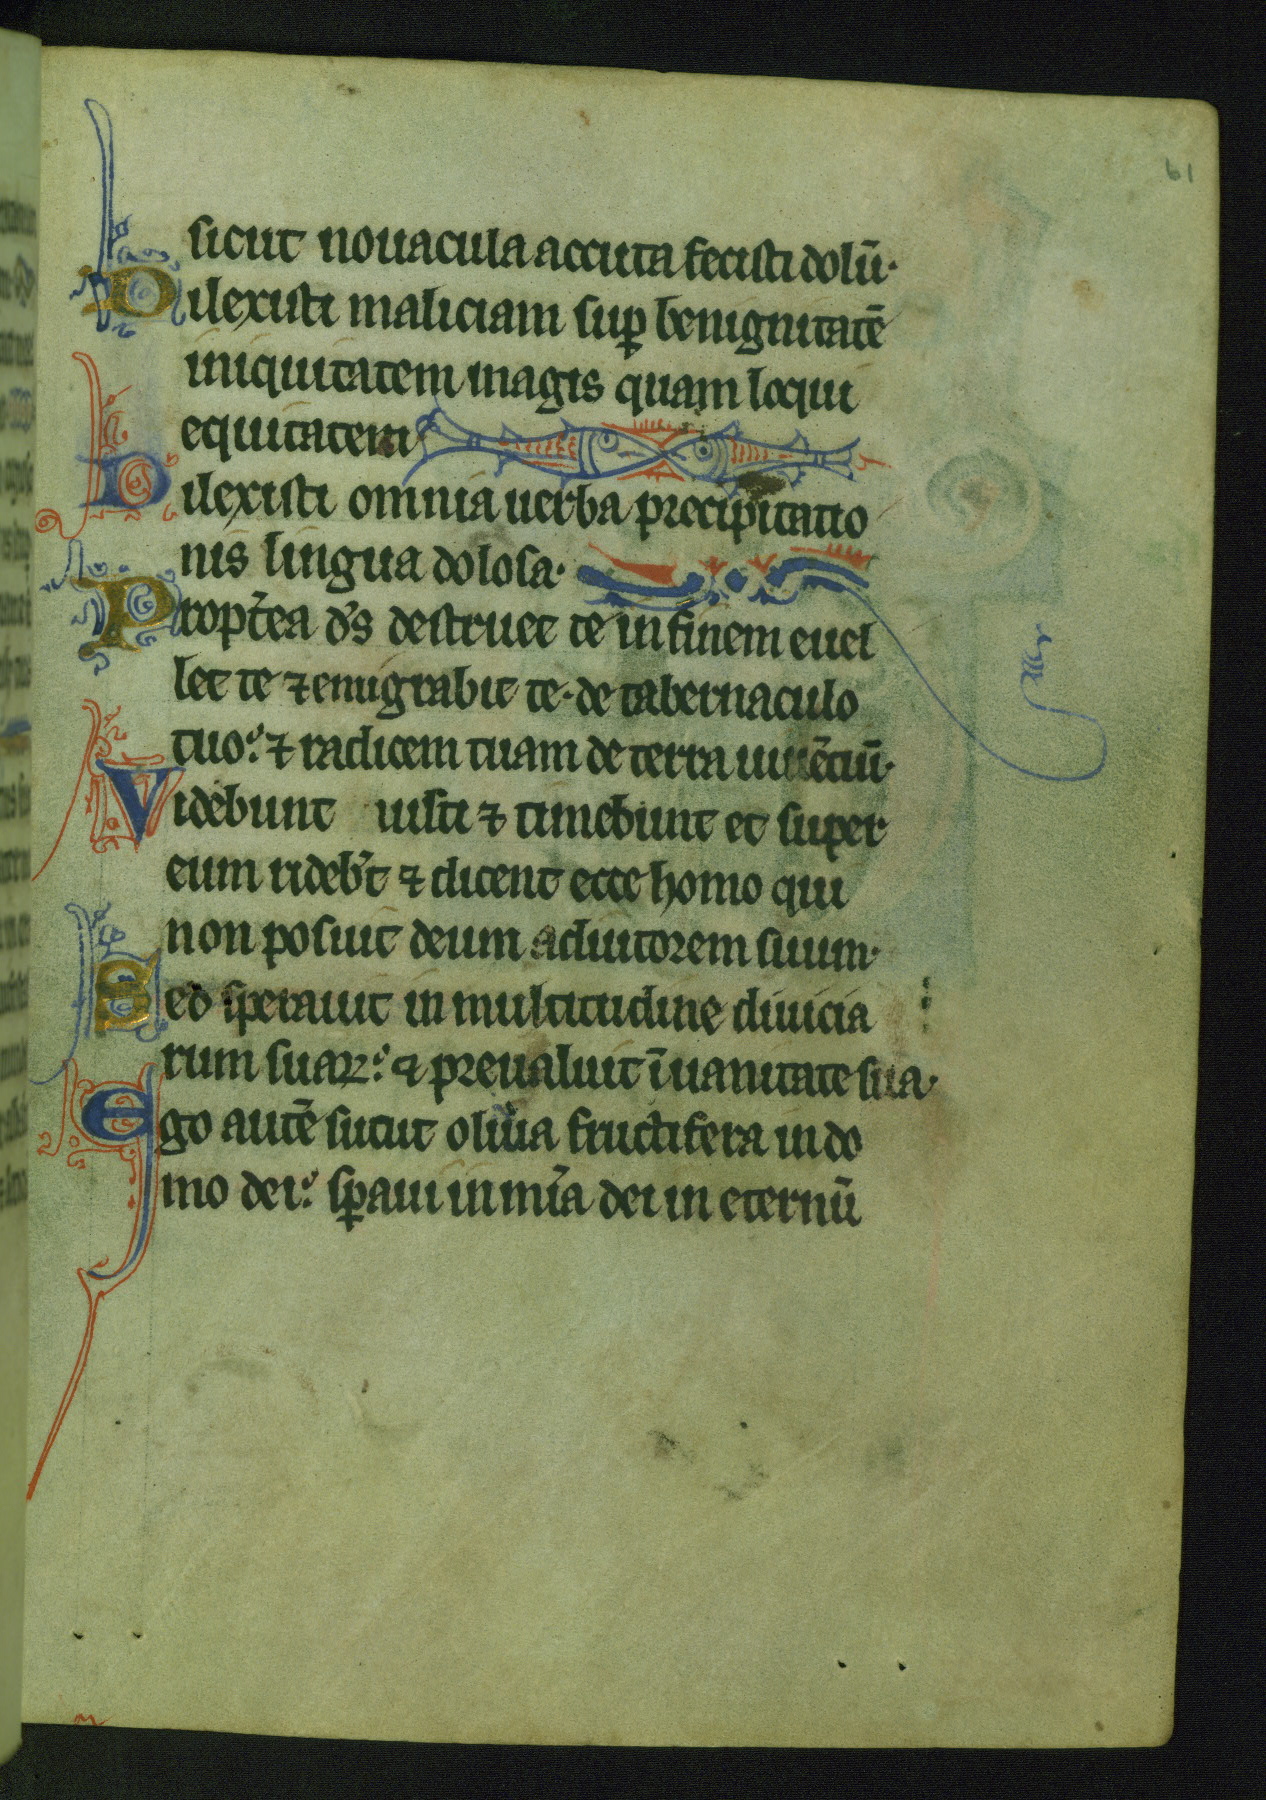 61
sicut nouacula accuta fecisti dolū·
Dilexisti maliciam suꝑ benignitatē
iniquitatem magis quam loqui
equitatem
Dilexisti omnia uerba precipitatio
nis lingua dolosa·
Propt̄ea d̄s destruet te in finem euel
let te ⁊ emigrabit te· de tabernaculo
tuo: ⁊ radicem tuam de terra uiuētiū·
Videbunt iusti ⁊ timebunt et super
eum rideb̄t ⁊ dicent ecce homo qui
non posuit deum adiutorem suum·
Sed sperauit in multitudine diuicia
rum suaꝝ: ⁊ preualuit ī uanitate sua·
Ego autē sicut oliua fructifera in do
mo dei: sꝑaui in mīa dei in eternū